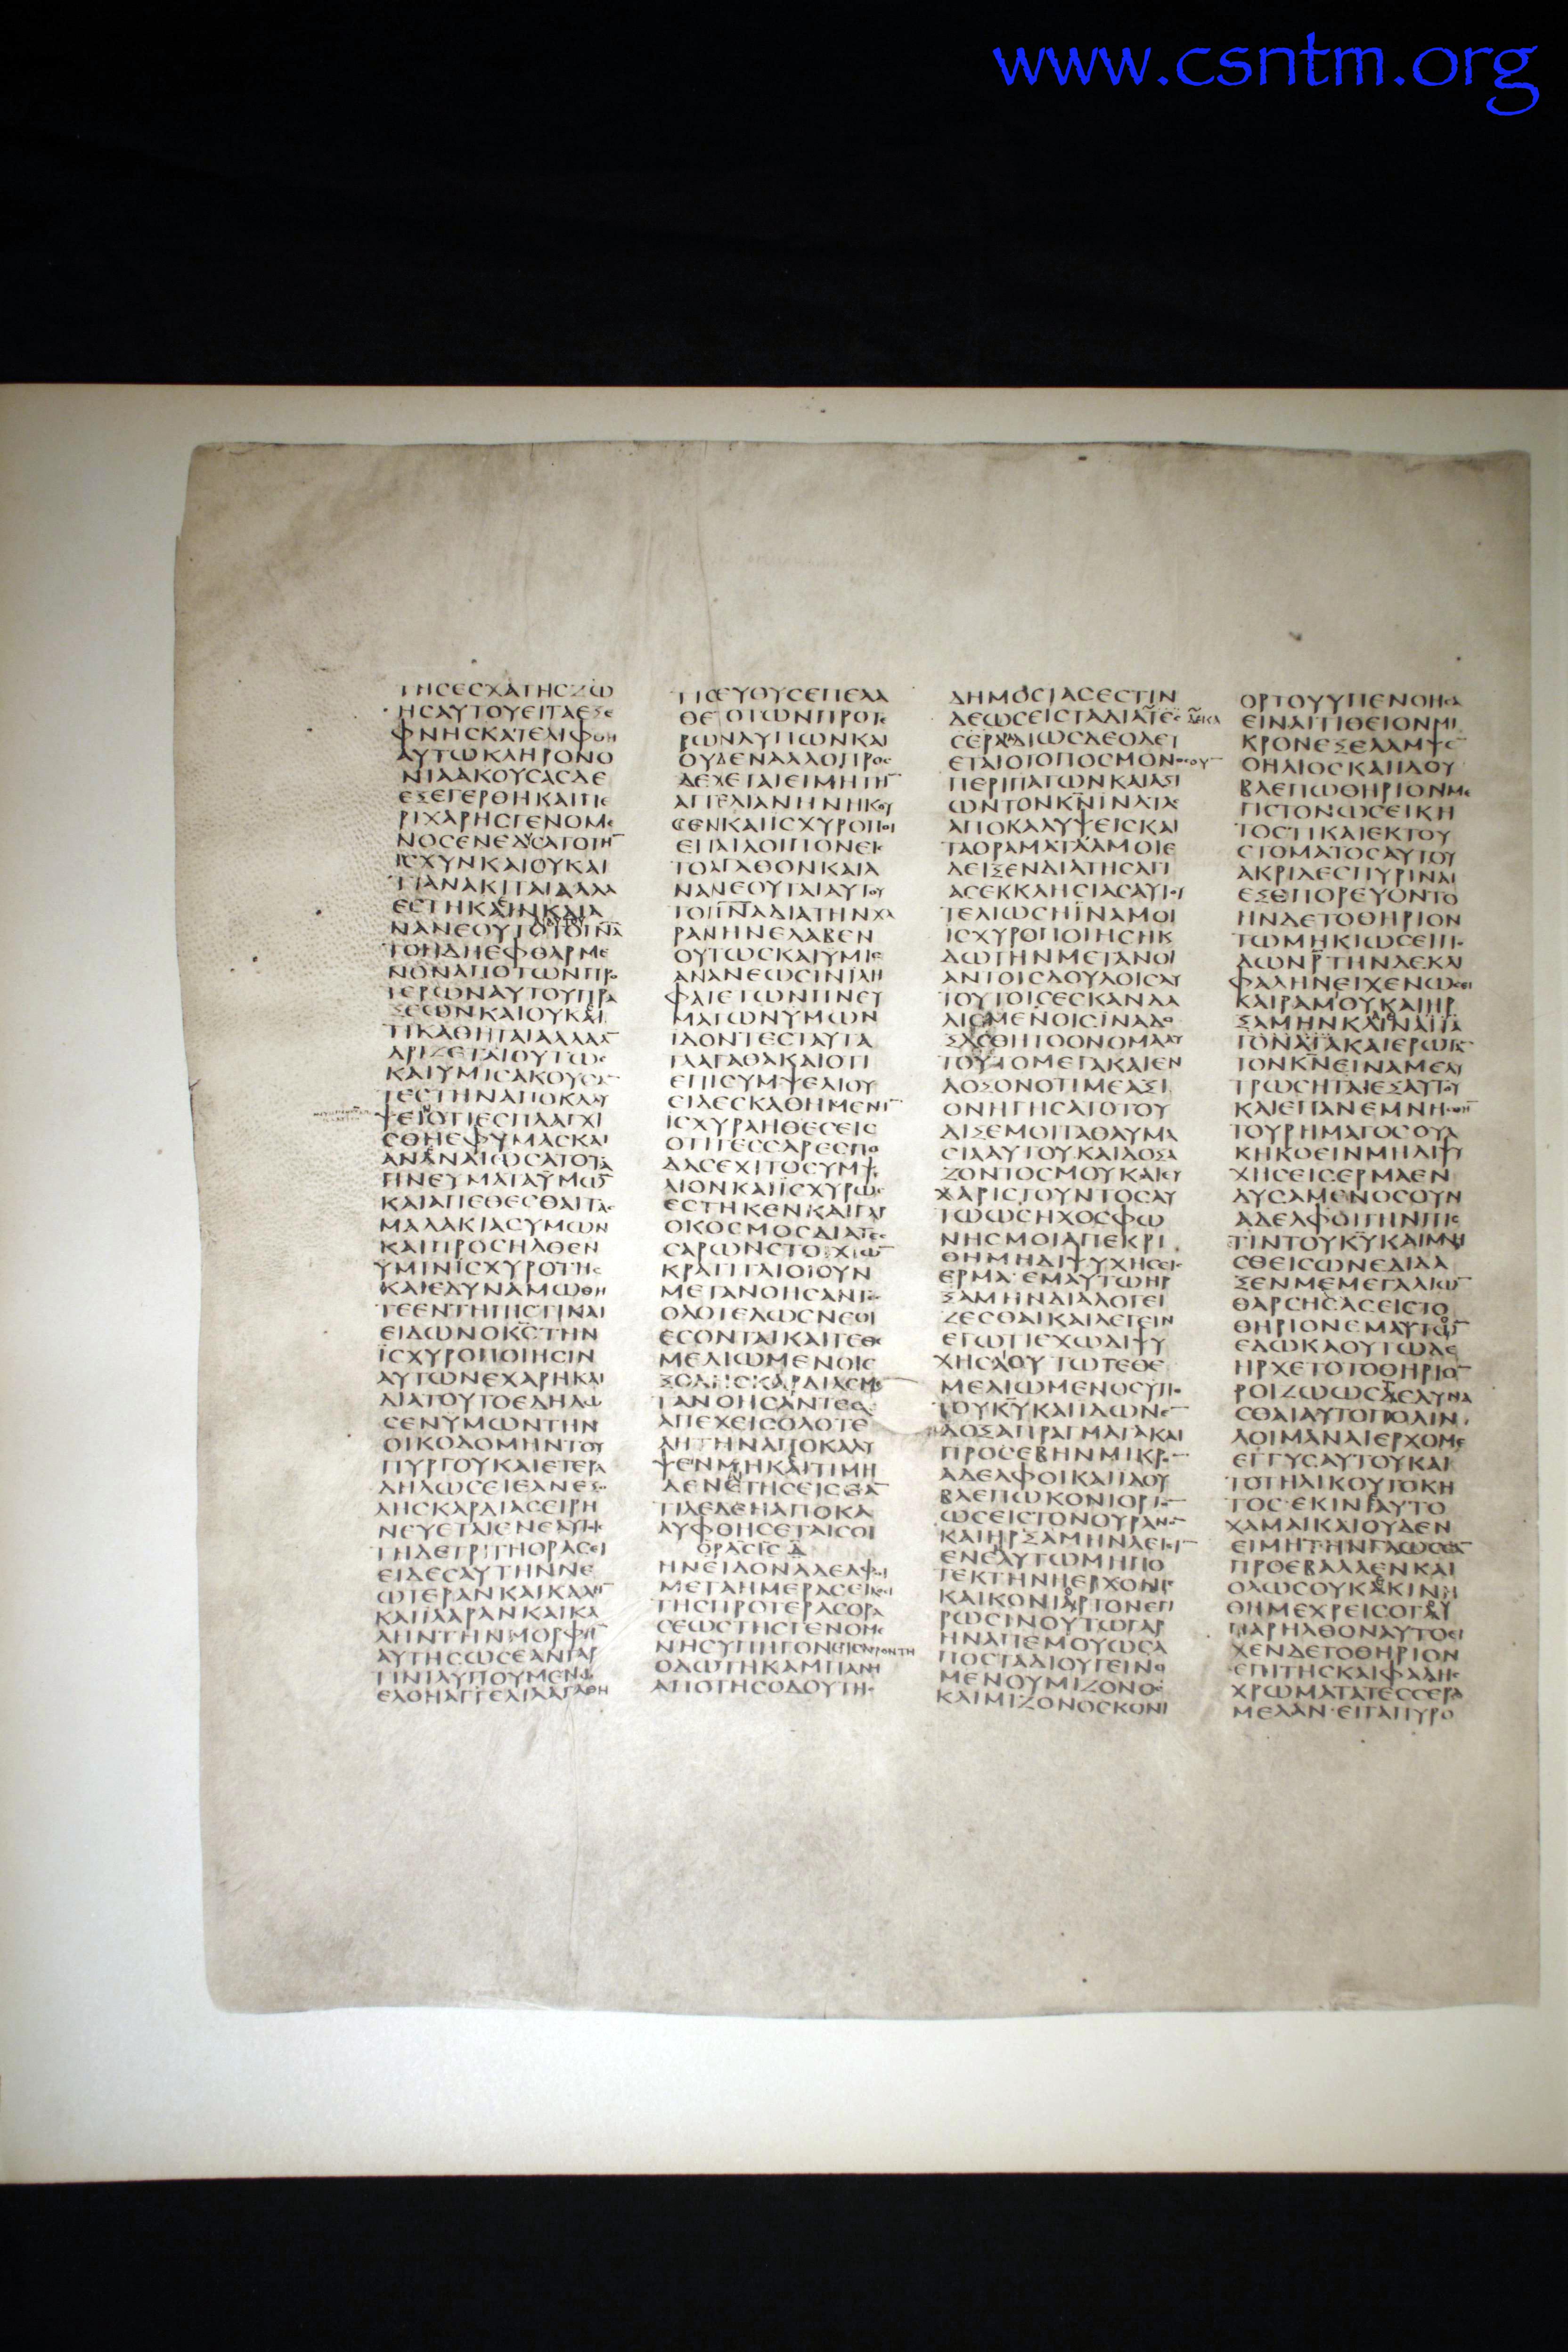 www.csntm.org
ΤΗСΕСΧΑΤΗСΖΩ
ΗСΑΥΤΟΥΕΙΤΑΕΞΕ
ΦΝΗСΚΑΤΕΛΙΦΘΗ
ΑΥΤΩΚΛΗΡΟΝΟ
ΝΙΑΑΚΟΥСΑСΔΕ
ΕΞΕΓΕΡΘΗΚΑΙΠΕ
ΡΙΧΑΡΗСΓΕΝΟΜΕ
ΝΟСΕΝΕΔΥСΑΤΟΤΗ̅
ΙСΧΥΝΚΑΙΟΥΚΑΙ
ΤΙΑΝΑΚΙΤΑΙΑΛΛΑ
ΕСΤΗΚΕΝΚΑΙΑ
ΝΑΝΕΟΥΤΑΙΑΥΤΟΥΤΟΠΝΑ
ΤΟΗΔΗΕΦΘΑΡΜΕ
ΝΟΝΑΠΟΤΩΝΠΡΟ
ΤΕΡΩΝΑΥΤΟΥΠΡΑ
ΞΕΩΝΚΑΙΟΥΚΕΤΙ
ΤΙΚΑΘΗΤΑΙΑΛΛΑΑ̅
ΔΡΙΖΕΤΑΙΟΥΤΩС
ΚΑΙΥΜΙСΑΚΟΥСΑ̅
ΤΕСΤΗΝΑΠΟΚΑΛΥ
ΨΕΙΟΤΙΕСΠΛΑΓΧΙ
СΘΗΕΦΥΜΑСΚΑΙ
ΑΝΑΝΑΙΩСΑΤΟΤΑ
ΠΝΕΥΜΑΤΑΥΜΩ̅
ΚΑΙΑΠΕΘΕСΘΑΙΤΑС
ΜΑΛΑΚΙΑСΥΜΩΝ
ΚΑΙΠΡΟСΗΛΘΕΝ
ΥΜΙΝΙСΧΥΡΟΤΗС
ΚΑΙΕΔΥΝΑΜΩΘΗ
ΤΕΕΝΤΗΠΙСΤΙΝΑΙ
ΕΙΔΩΝΟΚСΤΗΝ
ΙСΧΥΡΟΠΟΙΗСΙΝ
ΑΥΤΩΝΕΧΑΡΗΚΑΙ
ΔΙΑΤΟΥΤΟΕΔΗΛΩ
СΕΝΥΜΩΝΤΗΝ
ΟΙΚΟΔΟΜΗΝΤΟΥ
ΠΥΡΓΟΥΚΑΙΕΤΕΡΑ
ΔΗΛΩСΕΙΕΑΝΕΞΟ
ΛΗСΚΑΡΔΙΑСΕΙΡΗ
ΝΕΥΕΤΑΙΕΝΕΑΥΤΟΙС
ΤΗΔΕΤΡΙΤΗΟΡΑСΕΙ
ΕΙΔΕСΑΥΤΗΝΝΕ
ΩΤΕΡΑΝΚΑΙΚΑΛΗ̅
ΚΑΙΙΛΑΡΑΝΚΑΙΚΑ
ΛΗΝΤΗΝΜΟΡΦΗ̅
ΑΥΤΗСΩСΕΑΝΓΑΡ
ΤΙΝΙΛΥΠΟΥΜΕΝΩ
ΕΛΘΗΑΓΓΕΛΙΑΑΓΑΘΗ
ΤΙСΕΥΘΥСΕΠΕΛΑ
ΘΕΤΟΤΩΝΠΡΟΤΕ
ΡΩΝΛΥΠΩΝΚΑΙ
ΟΥΔΕΝΑΛΛΟΠΡΟС
ΔΕΧΕΤΑΙΕΙΜΗΤΗ̅
ΑΓΓΕΛΙΑΝΗΝΗΚΟΥ
СΕΝΚΑΙΙСΧΥΡΟΠΟΙ
ΕΙΤΑΙΛΟΙΠΟΝΕΙС
ΤΟΑΓΑΘΟΝΚΑΙΑ
ΝΑΝΕΟΥΤΑΙΑΥΤΟΥ
ΤΟΠΝΑΔΙΑΤΗΝΧΑ
ΡΑΝΗΝΕΛΑΒΕΝ
ΟΥΤΩСΚΑΙΥΜΙС
ΑΝΑΝΕΩСΙΝΙΛΗ
ΦΑΤΕΤΩΝΠΝΕΥ
ΜΑΤΩΝΥΜΩΝ
ΙΔΟΝΤΕСΤΑΥΤΑ
ΤΑΑΓΑΘΑΚΑΙΟΤΙ
ΕΠΙСΥΜΨΕΛΙΟΥ
ΕΙΔΕСΚΑΘΗΜΕΝΗ̅
ΙСΧΥΡΑΗΘΕСΕΙС
ΟΤΙΤΕССΑΡΕСΠΟ
ΔΑСΕΧΙΤΟСΥΜΨΕ
ΛΙΟΝΚΑΙΙСΧΥΡΩС
ΕСΤΗΚΕΝΚΑΙΓΑΡ
ΟΚΟСΜΟСΔΙΑΤΕС
СΑΡΩΝСΤΟΙΧΙΩ̅
ΚΡΑΤΙΤΑΙΟΙΟΥΝ
ΜΕΤΑΝΟΗСΑΝΤΕС
ΟΛΟΤΕΛΩСΝΕΟΙ
ΕСΟΝΤΑΙΚΑΙΤΕΘΕ
ΜΕΛΙΩΜΕΝΟΙΕ
ΞΟΛΗСΚΑΡΔΙΑСΜΕ
ΤΑΝΟΗСΑΝΤΕС
ΑΠΕΧΕΙСΟΛΟΤΕ
ΛΗΤΗΝΑΠΟΚΑΛΥ
ΨΕΝΜΗΚΕΤΙΜΗ
ΔΕΝΕΤΗСΕΙСΕΑ̅
ΤΙΔΕΔΕΗΑΠΟΚΑ
ΛΥΦΘΗСΕΤΑΙСΟΙ
ΟΡΑСΙС Δ̅
ΗΝΕΙΔΟΝΑΔΕΛΦΟΙ
ΜΕΤΑΗΜΕΡΑСΕΙΚΟСΙ
ΤΗСΠΡΟΤΕΡΑСΟΡΑ
СΕΩСΤΗСΓΕΝΟΜΕ
ΝΗСΥΠΗΓΟΝΕΙСΑΓΡΟΝΤΗ
ΟΔΩΤΗΚΑΜΠΑΝΗ
ΑΠΟΤΗСΟΔΟΥΤΗС
ΔΗΜΟСΙΑСΕСΤΙΝ
ΔΕΩСΕΙСΤΑΔΙΑΤΕС ΔΕΚΑ
СΕΡΑΡΑΔΙΩСΔΕΟΔΕΙ
ΕΤΑΙΟΤΟΠΟСΜΟΝΟСΟΥ̅
ΠΕΡΙΠΑΤΩΝΚΑΙΑΞΙ
ΩΝΤΟΝΚΝΙΝΑΤΑС
ΑΠΟΚΑΛΥΨΕΙСΚΑΙ
ΤΑΟΡΑΜΑΤΑΑΜΟΙΕ
ΔΕΙΞΕΝΔΙΑΤΗСΑΓΙ
ΑСΕΚΚΛΗСΙΑСΑΥΤΟΥ
ΤΕΛΙΩСΗΙΝΑΜΟΙ
ΙСΧΥΡΟΠΟΙΗСΗΚ
ΔΩΤΗΝΜΕΤΑΝΟΙ
ΑΝΤΟΙСΔΟΥΛΟΙСΑΥ
ΤΟΥΤΟΙСΕСΚΑΝΔΑ
ΛΙСΜΕΝΟΙСΙΝΑΔΟ
ΞΑСΘΗΤΟΟΝΟΜΑΑΥ
ΤΟΥΤΟΜΕΓΑΚΑΙΕΝ
ΔΟΞΟΝΟΤΙΜΕΑΞΙ
ΟΝΗΓΗСΑΤΟΤΟΥ
ΔΙΞΕΜΟΙΤΑΘΑΥΜΑ
СΙΑΑΥΤΟΥΚΑΙΔΟΞΑ
ΖΟΝΤΟСΜΟΥΚΑΙΕΥ
ΧΑΡΙСΤΟΥΝΤΟСΑΥ
ΤΩΩСΗΧΟСΦΩ
ΝΗСΜΟΙΑΠΕΚΡΙ
ΘΗΜΗΔΙΨΥΧΗСΕΙС
ΕΡΜΑ·ΕΜΑΥΤΩΗΡ
ΞΑΜΗΝΔΙΑΛΟΓΕΙ
ΖΕСΘΑΙΚΑΙΛΕΓΕΙΝ
ΕΓΩΤΙΕΧΩΔΙΨΥ
ΧΗСΑΙΟΥΤΩΤΕΘΕ
ΜΕΛΙΩΜΕΝΟСΥΠΟ
ΤΟΥΚΥΚΑΙΙΔΩΝΕ̅
ΔΟΞΑΠΡΑΓΜΑΤΑΚΑΙ
ΠΡΟСΕΒΗΝΜΙΚΡΟ̅
ΑΔΕΛΦΟΙΚΑΙΙΔΟΥ
ΒΛΕΠΩΚΟΝΙΟΡΤΟ̅
ΩСΕΙСΤΟΝΟΥΡΑΝΟ̅
ΚΑΙΗΡΞΑΜΗΝΛΕΓΙ̅
ΕΝΕΑΥΤΩΜΗΠΟ
ΤΕΚΤΗΝΗΕΡΧΟΝΤΕ
ΚΑΙΚΟΝΙΟΡΤΟΝΕΓΙ
ΡΩСΙΝΟΥΤΩΓΑΡ
ΗΝΑΠΕΜΟΥΩСΑ
ΠΟСΤΑΔΙΟΥΓΕΙΝΟ
ΜΕΝΟΥΜΙΖΟΝΟС
ΚΑΙΜΙΖΟΝΟСΚΟΝΙ
ΟΡΤΟΥΥΠΕΝΟΗСΑ
ΕΙΝΑΙΤΙΘΕΙΟΝΜΙ
ΚΡΟΝΕΞΕΛΑΜΨΕ̅
ΟΗΛΙΟСΚΑΙΙΔΟΥ
ΒΛΕΠΩΘΗΡΙΟΝΜΕ
ΓΙСΤΟΝΩСΕΙΚΗ
ΤΟСΤΙΚΑΙΕΚΤΟΥ
СΤΟΜΑΤΟСΑΥΤΟΥ
ΑΚΡΙΔΕСΠΥΡΙΝΑΙ
ΕΞΕΠΟΡΕΥΟΝΤΟ
ΗΝΔΕΤΟΘΗΡΙΟΝ
ΤΩΜΗΚΙΩСΕΙΠΟ
ΔΩΝΡ̅ΤΗΝΔΕΚΑΙ
ΦΑΛΗΝΕΙΧΕΝΩСΕΙ
ΚΑΙΡΑΜΟΥΚΑΙΗΡ
ΞΑΜΗΝΚΛΑΙΝΑΙΚΑΙ
ΤΟΝΚΝΕΙΝΑΜΕΛΥ
ΤΡΩСΗΤΑΙΕΞΑΥΤΟΥ
ΚΑΙΕΠΑΝΕΜΝΗСΘΗ̅
ΤΟΥΡΗΜΑΤΟСΟΥΑ
ΚΗΚΟΕΙΝΜΗΔΙΨΥ
ΧΗСΕΙСΕΡΜΑΕΝ
ΔΥСΑΜΕΝΟСΟΥΝ
ΑΔΕΛΦΟΙΤΗΝΠΙС
ΤΙΝΤΟΥΚΥΚΑΙΜΝΗ
СΘΕΙСΩΝΕΔΙΔΑ
ΞΕΝΜΕΜΕΓΑΛΙΩ̅
ΘΑΡСΗСΑСΕΙСΤΟ
ΘΗΡΙΟΝΕΜΑΥΤΟ̅
ΕΔΩΚΑΟΥΤΩΔΕ
ΗΡΧΕΤΟΤΟΘΗΡΙΟ̅
ΡΟΙΖΩΩСΤΕΔΥΝΑ
СΘΑΙΑΥΤΟΠΟΛΙΝ
ΛΟΙΜΑΝΑΙΕΡΧΟΜΕ
ΕΓΓΥСΑΥΤΟΥΚΑΙ
ΤΟΤΗΛΙΚΟΥΤΟΚΗ
ΤΟСΕΚΙΝΙΑΥΤΟ
ΧΑΜΑΙΚΑΙΟΥΔΕΝ
ΕΙΜΗΤΗΝΓΛΩССΑ̅
ΠΡΟΕΒΑΛΛΕΝΚΑΙ
ΟΛΩСΟΥΚΕΚΙΝΗ
ΘΗΜΕΧΡΕΙСΟΤΟΥ
ΠΑΡΗΛΘΟΝΑΥΤΟΕΙ
ΧΕΝΔΕΤΟΘΗΡΙΟΝ
ΕΠΙΤΗСΚΑΙΦΑΛΗС
ΧΡΩΜΑΤΑΤΕССΕΡΑ
ΜΕΛΑΝ·ΕΙΤΑΠΥΡΟ